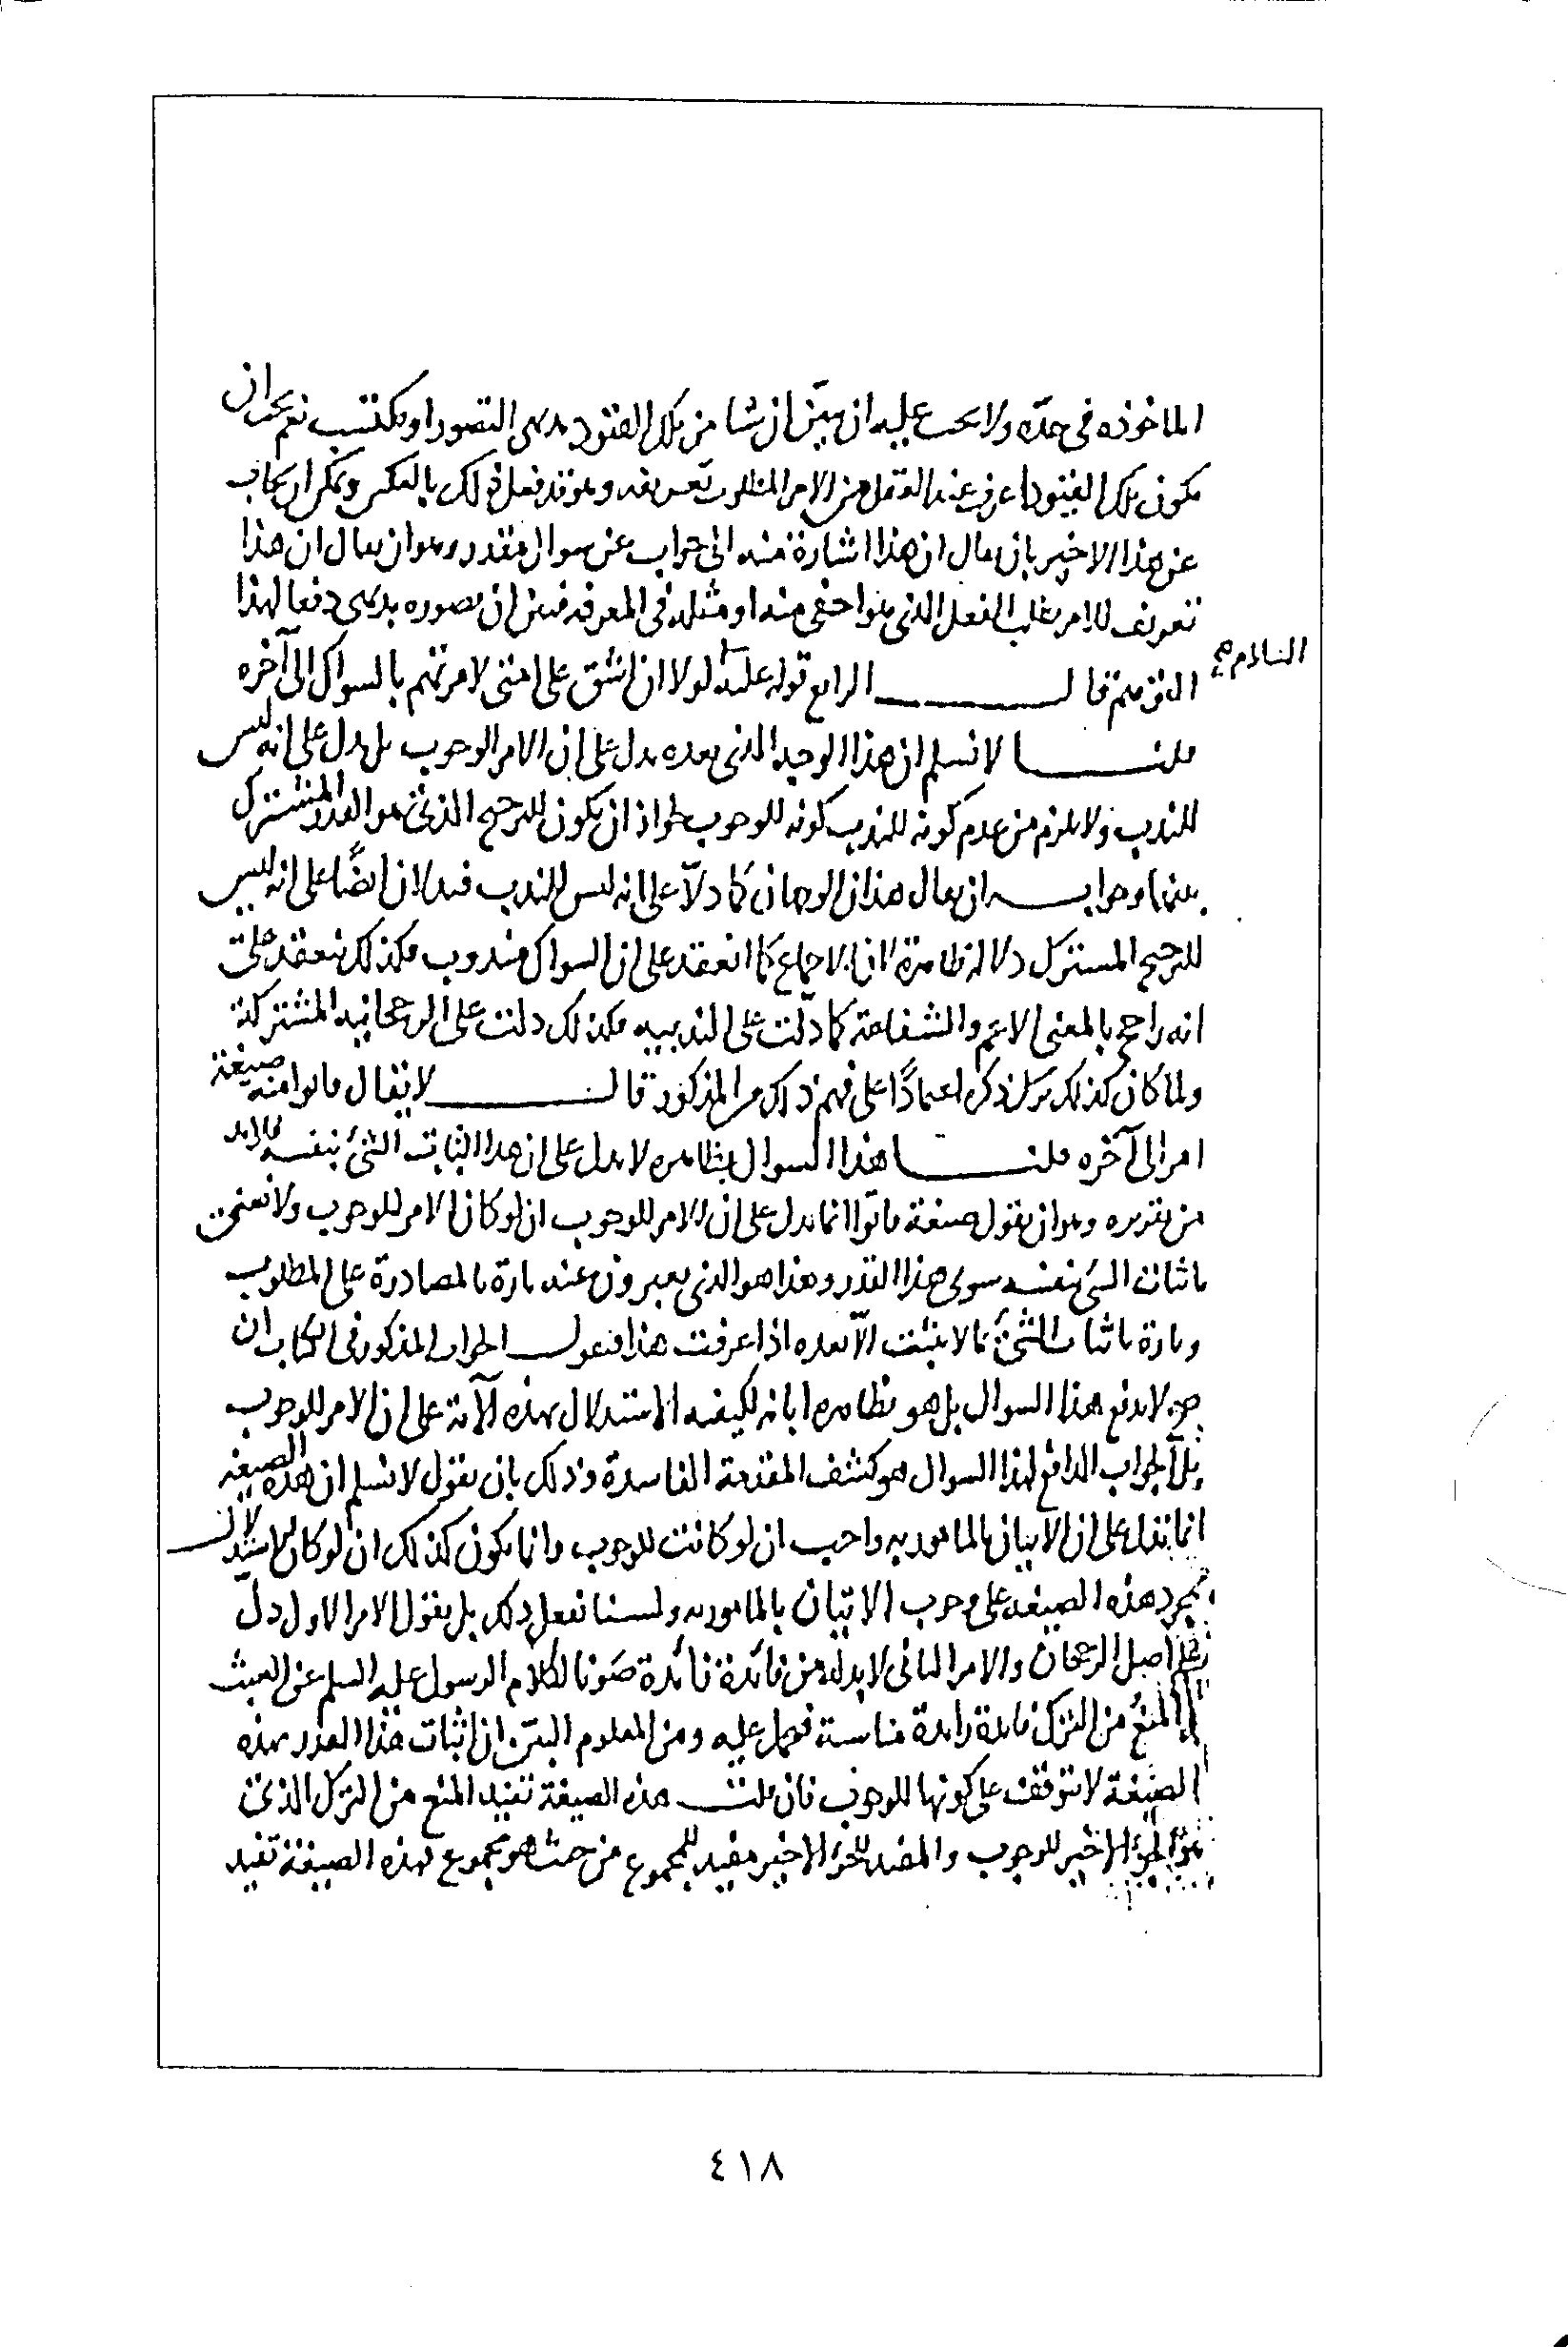 الماخوذه فى حدّه ولا يجب عليه ان يبيّن ان شا من تلك القيود بديهى التصور او مكتسب نعم يجب ان
يكون تلك القيود اعرف عند العقل من الامر المطلوب تعريفه وهو قد فعل ذلك بالعكس ويمكن ان يجاب
عن هذا الاخير بان يقال ان هذا اشارة منه الى جواب عن سوال مقدر وهو ان يقال ان هذا
تعريف للامر بطلب الفعل الذى هو اخفى منه او مثله فى المعرفه فبين ان تصوره بديهى دفعا لهذا
التوهم قال الرابع قوله عليه لولا ان اشق على امتى لامرتهم بالسواك الى آخره
قلنا لا نسلم ان هذا الوجه الذى بعده يدل على ان الامر للوجوب بل يدل على انه ليس
للندب ولا يلزم من عدم كونه للندب كونه للوجوب لجواز ان يكون للترجيح الذى هو القدر المشترك
بينهما وجوابه ان يقال هذان الوجهان كما دلّا على انه ليس للندب فيدلان ايضًا على انه ليس
للترجيح المشترك دلالة ظاهرة لان الاجماع كما انعقد على ان السواك مندوب فكذلك منعقد على
انه راجح بالمعنى الاعم والشفاعة كما دلّت على الندبيه فكذلك دلت على الرجحانيه المشتركة
ولما كان كذلك ترك ذكره اعتمادًا على فهم ذلك من المذكور قال لا يقال قالوا منه صيغة
امر الى آخره قلنا هذا السوال بظاهره لا يدل على ان هذا اثبات الشئ بنفسه فلا بد
من تقريره وهو ان يقول صيغة فاتوا انما يدل على ان الامر للوجوب ان لو كان الامر للوجوب ولا نعنى
باثبات الشئ بنفسه سوى هذا القدر وهذا هو الذى يعبرون عنه تارة بالمصادرة على المطلوب
وتارة باثبات الشئ بما لا يثبت الّا بعده اذا عرفت هذا فنقول الجواب المذكور فى الكتاب ان
صح لا يدفع هذا السوال بل هو بظاهره ابانه لكيفيه الاستدلال بهذه الآية على ان الامر للوجوب
بل الجواب الدافع لهذا السوال هو كشف المقدمة الفاسدة وذلك بان يقول لا نسلم ان هذه الصيغه
انما تدل على ان الاتيان بالمامور به واجب ان لو كانت للوجوب وانما يكون كذلك ان لو كان الاستدلال
بمجرد هذه الصيغه على وجوب الاتيان بالمامور به ولسنا نفعل ذلك بل يقول الامر الاول دل
على اصل الرجحان والامر الثانى لا بد له من فائدة زائدة صونا لكلام الرسول عليه السلم عن العبث
المنع من الترك فايدة زايدة مناسبة فحمل عليه ومن المعلوم البيّن ان اثبات هذا القدر بهذه
الصيغة لا تتوقف على كونها للوجوب فان قلت هذه الصيغة تفيد المنع من الترك الذى
هو الجزء الاخير للوجوب والمفيد للجزء الاخير مفيد للمجموع من حيث هو مجموع فهذه الصيغة تفيد
٤١٨